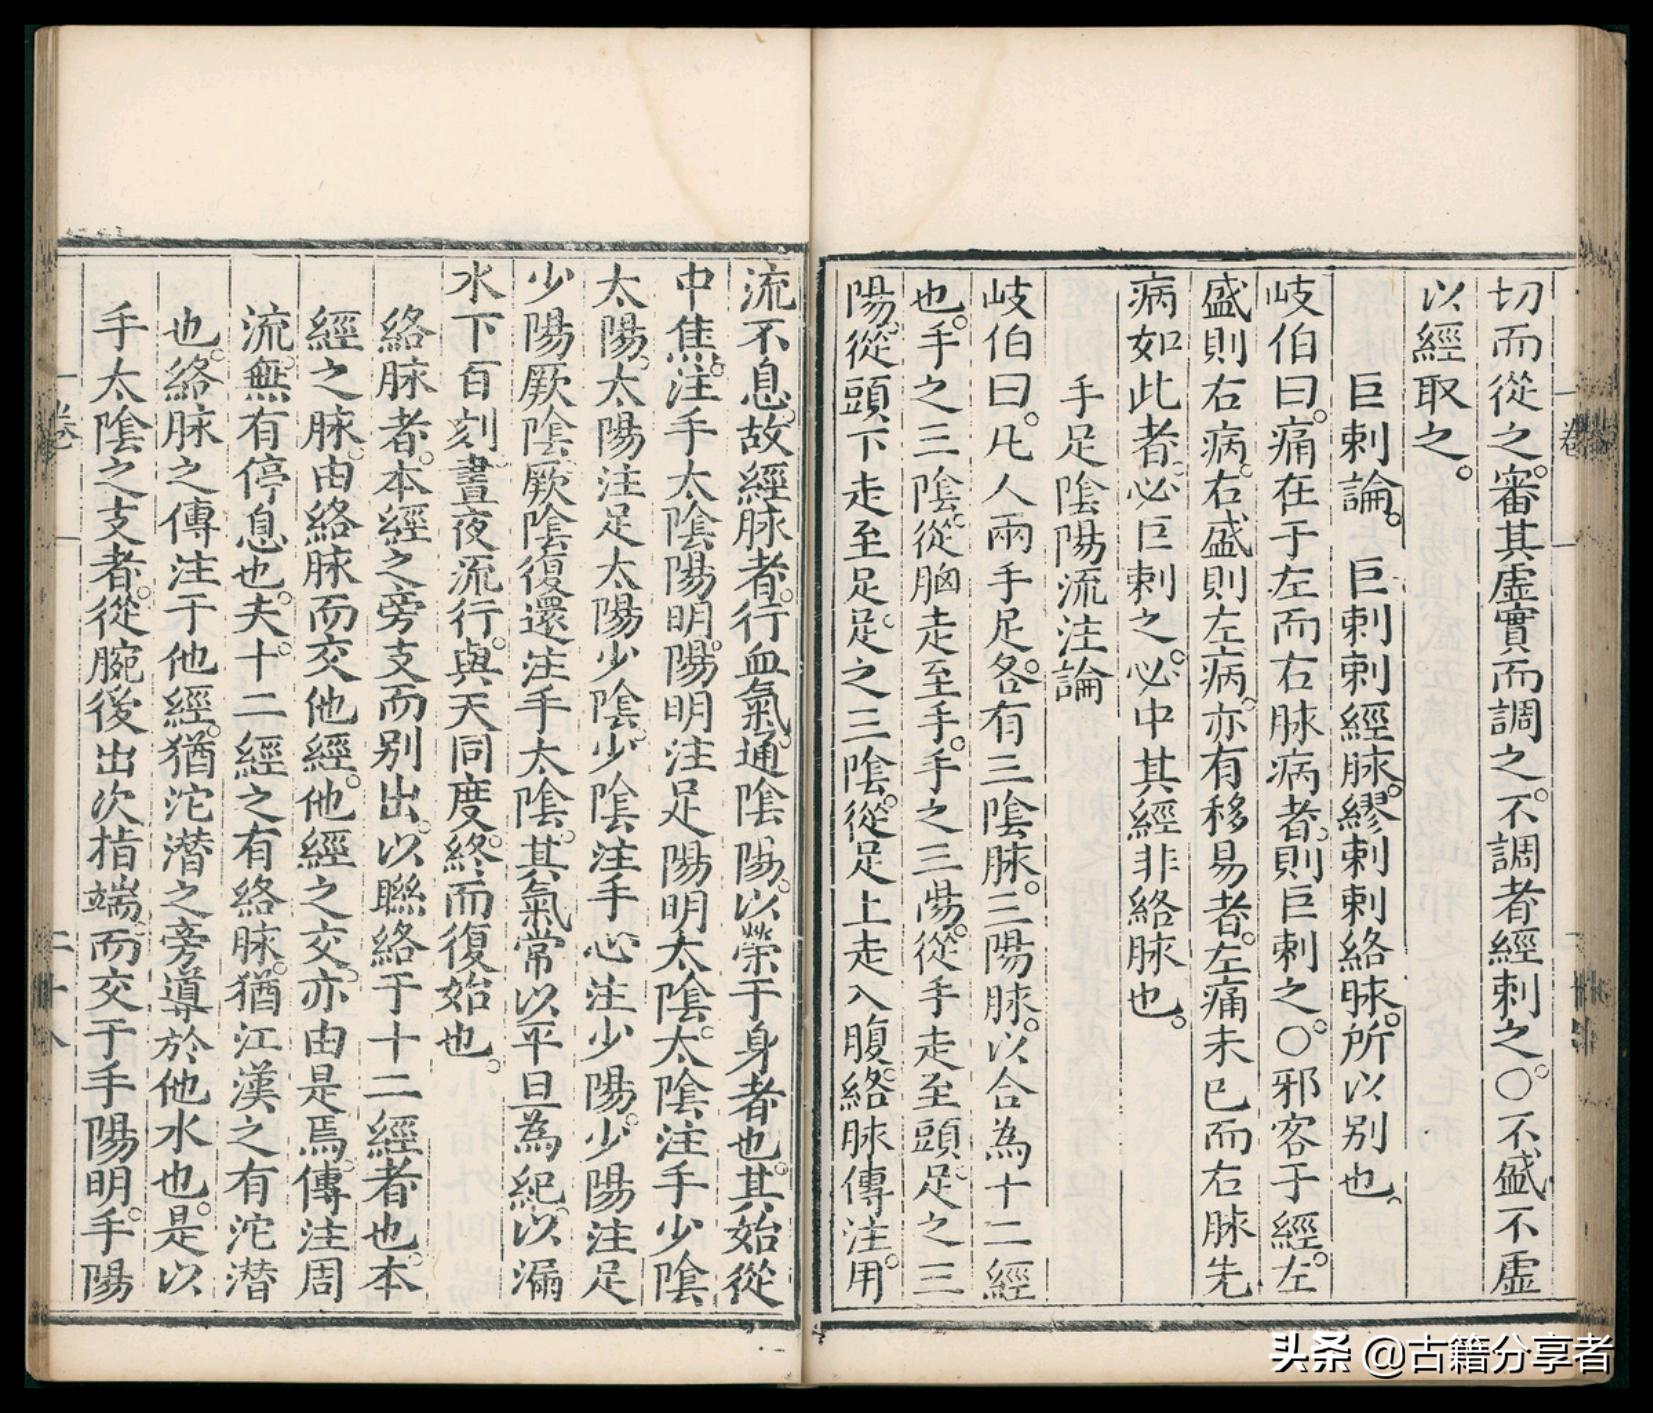 切而從之。審其虛實而調之。不調者經刺之。○不盛不虛
以經取之。
巨刺論。　巨刺刺經脉。繆刺刺絡脉。所以別也。
岐伯曰。痛在于左而右脉病者。則巨刺之。○邪客于經。左
盛則右病。右盛則左病。亦有移易者。左痛未已而右脉先
病如此者。必巨刺之。必中其經非絡脉也。
手足陰陽流注論
岐伯曰。凡人兩手足。各有三陰脉。三陽脉。以合為十二經
也。手之三陰。從胸走至手。手之三陽。從手走至頭。足之三
陽。從頭下走至足。足之三陰。從足上走入腹。絡脉傳注。用
流不息。故經脉者。行血氣。通陰陽。以榮于身者也。其始從
中焦。注手太陰陽明。陽明注足陽明太陰。太陰注手少陰
太陽。太陽注足太陽少陰。少陰注手心注少陽。少陽注足
少陽厥陰。厥陰復還注手太陰。其氣常以平旦為紀。以漏
水下百刻。晝夜流行。與天同度。終而復始也。
絡脉者。本經之旁支而别出。以聮絡于十二經者也。本
經之脉。由絡脉而交他經。他經之交。亦由是焉。傳注周
流。無有停息也。夫十二經之有絡脉。猶江漢之有沱潛
也。絡脉之傳注于他經。猶沱潛之旁導於他水也。是以
手太陰之支者。從腕後出次指端。而交于手陽明。手陽
卷一
二十八
头条 @古籍分享者